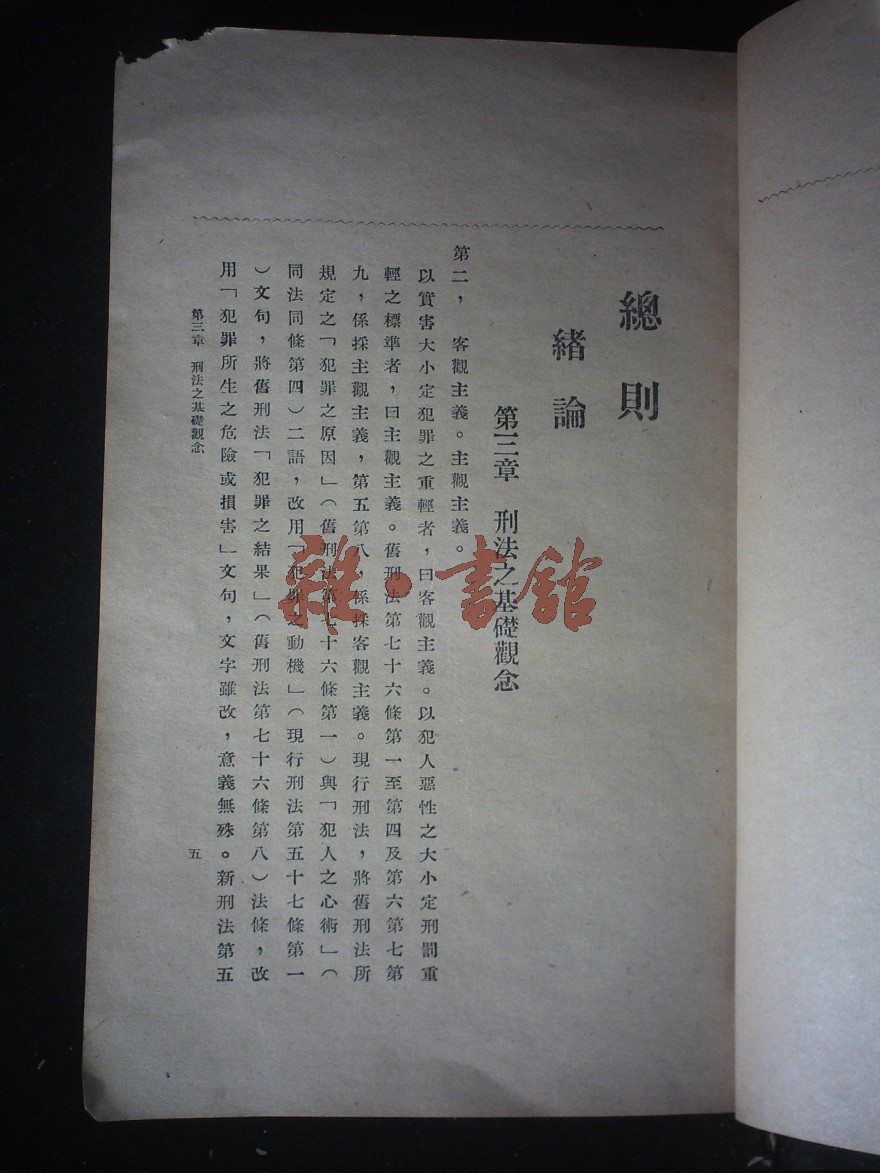 總則
緒論
第三章　刑法之基礎觀念
第二，客觀主義。主觀主義。
以實害大小定犯罪之重輕者，曰客觀主義。以犯人惡性之大小定刑罰重
輕之標準者，曰主觀主義。舊刑法第七十六條第一至第四及第六第七第
九，係採主觀主義，第五第八，係採客觀主義。現行刑法，將舊刑法所
規定之「犯罪之原因」（舊刑法第七十六條第一）與「犯人之心術」（
同法同條第四）二語，改用「犯罪之動機」（現行刑法第五十七條第一
）文句，將舊刑法「犯罪之結果」（舊刑法第七十六條第八）法條，改
用「犯罪所生之危險或損害」文句，文字雖改，意義無殊。新刑法第五
第三章　刑法之基礎觀念　五
雜·書館